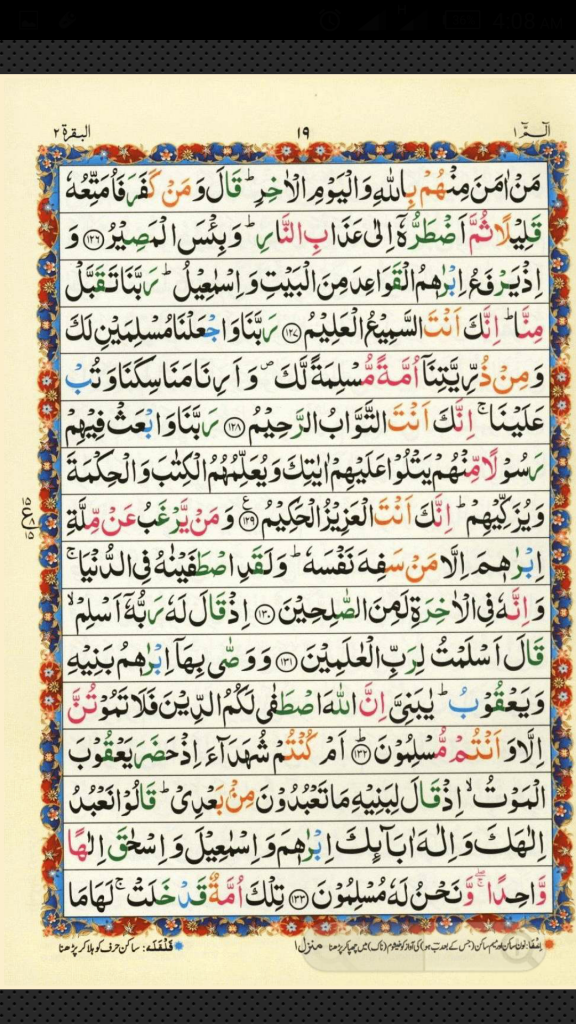 الٓمّٓ ١ ١٩ البقرة ٢
مَنْ اٰمَنَ مِنْهُمْ بِاللّٰهِ وَالْيَوْمِ الْاٰخِرِ ؕ قَالَ وَمَنْ كَفَرَ فَاُمَتِّعُهٗ
قَلِيْلًا ثُمَّ اَضْطَرُّهٗۤ اِلٰى عَذَابِ النَّارِ ؕ وَبِئْسَ الْمَصِيْرُ ﴿١٢٦﴾ وَ
اِذْ يَرْفَعُ اِبْرٰهٖمُ الْقَوَاعِدَ مِنَ الْبَيْتِ وَاِسْمٰعِيْلُ ؕ رَبَّنَا تَقَبَّلْ
مِنَّا ؕ اِنَّكَ اَنْتَ السَّمِيْعُ الْعَلِيْمُ ﴿١٢٧﴾ رَبَّنَا وَاجْعَلْنَا مُسْلِمَيْنِ لَكَ
وَمِنْ ذُرِّيَّتِنَاۤ اُمَّةً مُّسْلِمَةً لَّكَ ۪ وَاَرِنَا مَنَاسِكَنَا وَتُبْ
عَلَيْنَا ۚ اِنَّكَ اَنْتَ التَّوَّابُ الرَّحِيْمُ ﴿١٢٨﴾ رَبَّنَا وَابْعَثْ فِيْهِمْ
رَسُوْلًا مِّنْهُمْ يَتْلُوْا عَلَيْهِمْ اٰيٰتِكَ وَيُعَلِّمُهُمُ الْكِتٰبَ وَالْحِكْمَةَ
وَيُزَكِّيْهِمْ ؕ اِنَّكَ اَنْتَ الْعَزِيْزُ الْحَكِيْمُ ﴿١٢٩﴾ ع وَمَنْ يَّرْغَبُ عَنْ مِّلَّةِ
اِبْرٰهٖمَ اِلَّا مَنْ سَفِهَ نَفْسَهٗ ؕ وَلَقَدِ اصْطَفَيْنٰهُ فِى الدُّنْيَا ۚ
وَاِنَّهٗ فِى الْاٰخِرَةِ لَمِنَ الصّٰلِحِيْنَ ﴿١٣٠﴾ اِذْ قَالَ لَهٗ رَبُّهٗۤ اَسْلِمْ ۙ
قَالَ اَسْلَمْتُ لِرَبِّ الْعٰلَمِيْنَ ﴿١٣١﴾ وَوَصّٰى بِهَاۤ اِبْرٰهٖمُ بَنِيْهِ
وَيَعْقُوْبُ ؕ يٰبَنِىَّ اِنَّ اللّٰهَ اصْطَفٰى لَكُمُ الدِّيْنَ فَلَا تَمُوْتُنَّ
اِلَّا وَاَنْتُمْ مُّسْلِمُوْنَ ؕ ﴿١٣٢﴾ اَمْ كُنْتُمْ شُهَدَآءَ اِذْ حَضَرَ يَعْقُوْبَ
الْمَوْتُ ۙ اِذْ قَالَ لِبَنِيْهِ مَا تَعْبُدُوْنَ مِنْۢ بَعْدِىْ ؕ قَالُوْا نَعْبُدُ
اِلٰهَكَ وَاِلٰهَ اٰبَآئِكَ اِبْرٰهٖمَ وَاِسْمٰعِيْلَ وَاِسْحٰقَ اِلٰهًا
وَّاحِدًا ۖۚ وَّنَحْنُ لَهٗ مُسْلِمُوْنَ ﴿١٣٣﴾ تِلْكَ اُمَّةٌ قَدْ خَلَتْ ۚ لَهَا مَا
منزل ١ قلقلہ: ساکن حرف کو ہلا کر پڑھنا